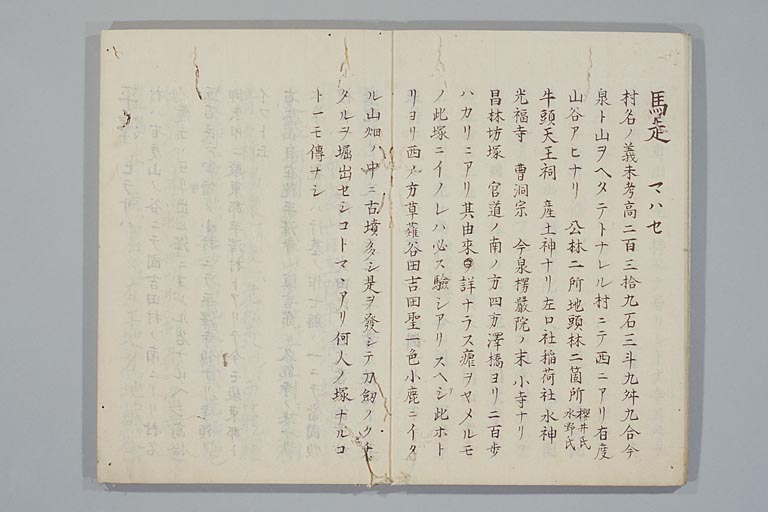 馬走 マハセ
村名ノ義未考高二百三拾九石三斗九舛九合今
泉ト山ヲヘタテトナレル村ニテ西ニアリ有度
山谷アヒナリ 公林二所地頭林二箇所 櫻井氏 水野氏
牛頭天王祠 産土神ナリ左口社稲荷社水神
光福寺 曹洞宗 今泉楞嚴院ノ末小寺ナリ
昌林坊塚 官道ノ南ノ方四方澤橋ヨリ二百歩
ハカリニアリ其由來詳ナラス瘧ヲヤメルモ
ノ此塚ニイノレハ必ス驗シアリスヘシ此ホト
リヨリ西ノ方草薙谷田吉田聖一色小鹿ニイタ
ル山畑ノ中ニ古墳多シ是ヲ發シテ刀劔ノクチ
タルヲ堀出セシコトマヽアリ何人ノ塚ナルコ
ト一モ傳ナシ